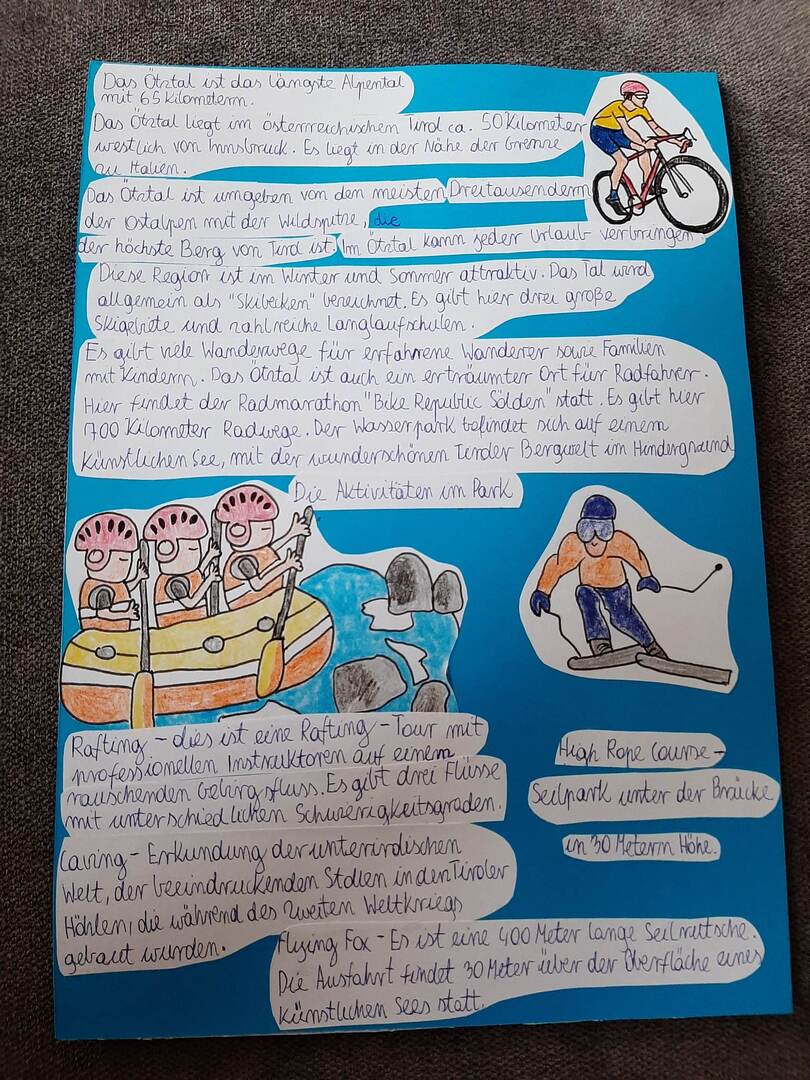 Das Ötztal ist das längste Alpental
mit 65 Kilometern.
Das Ötztal liegt im österreichischen Tirol ca. 50 Kilometer
westlich von Innsbruck. Es liegt in der Nähe der Grenze
zu Italien.
Das Ötztal ist umgeben von den meisten Dreitausendern
der Ostalpen mit der Wildspitze, die
der höchste Berg von Tirol ist. Im Ötztal kann jeder Urlaub verbringen.
Diese Region ist im Winter und Sommer attraktiv. Das Tal wird
allgemein als "Skibecken" bezeichnet. Es gibt hier drei große
Skigebiete und zahlreiche Langlaufschulen.
Es gibt viele Wanderwege für erfahrene Wanderer sowie Familien
mit Kindern. Das Ötztal ist auch ein erträumter Ort für Radfahrer.
Hier findet der Radmarathon "Bike Republic Sölden" statt. Es gibt hier
700 Kilometer Radwege. Der Wasserpark befindet sich auf einem
künstlichen See, mit der wunderschönen Tiroler Bergwelt im Hindergraund
Die Aktivitäten im Park
Rafting - dies ist eine Rafting - Tour mit
professionellen Instruktoren auf einem
rauschenden Gebirgsfluss. Es gibt drei Flüsse
mit unterschiedlichen Schwierigkeitsgraden.
High Rope Course -
Seilpark unter der Brücke
in 30 Metern Höhe.
Caving - Erkundung der unterirdischen
Welt, der beeindruckenden Stollen in den Tiroler
Höhlen, die während des zweiten Weltkriegs
gebaut wurden.
Flying Fox - Es ist eine 400 Meter lange Seilrutsche.
Die Ausfahrt findet 30 Meter über der Oberfläche eines
künstlichen Sees statt.